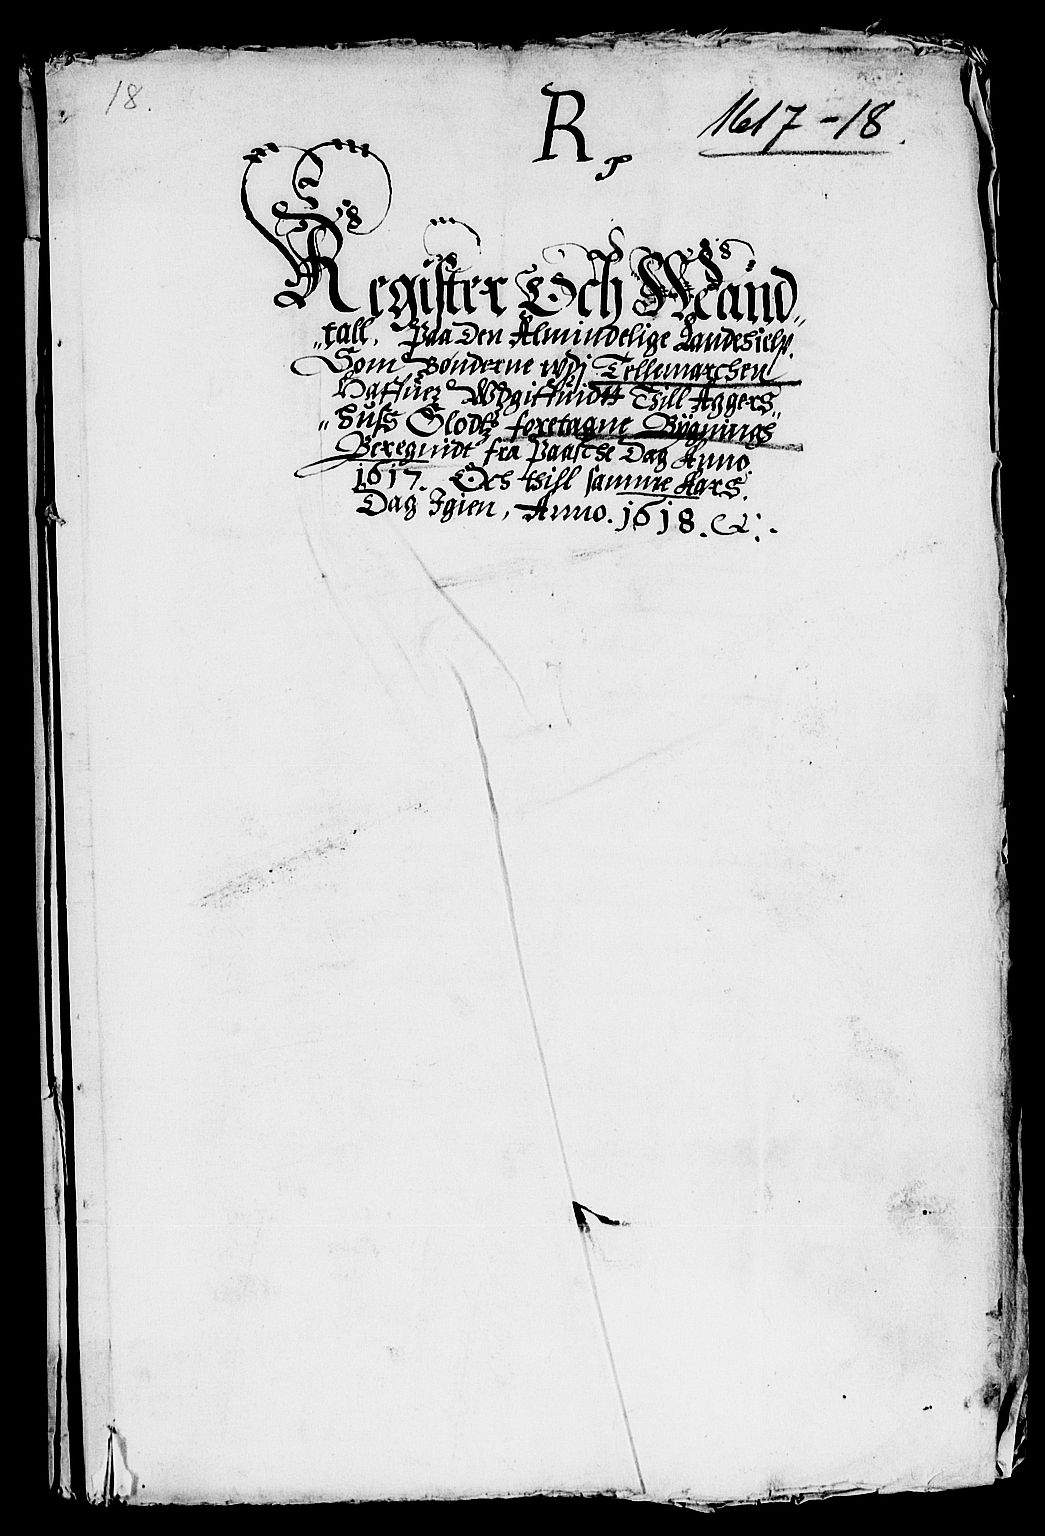 18.
R
1617-18.
Register Och Mand„
„tall, Paa Den Almindelige Landehielp.
Som Bønderne wdj Tellemarchen
Haffuer Wdgiffuidtt Thill Aggers„
„huss Slodtz foretagne Bÿgnings
Beregnidt fra Paasche Dag Anno.
1617. Och thill samme Aars.
Dag Igien, Anno. 1618. &:.